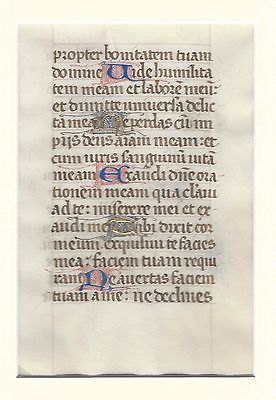 propter bonitatem tuam
domine Vide humilita
tem meam et laborem meū
et dimitte universa delic
ta mea Ne perdas cū im
pijs deus aīam meam : et
cum viris sanguinū vitā
meam Exaudi dn̄e ora
tionem meam qua clavi
ad te : miserere mei et ex
audi me Tibi dixit cor
meum exquisivi te facies
mea : faciem tuam requi
ram Ne avertas faciem
tuam a me : ne declines